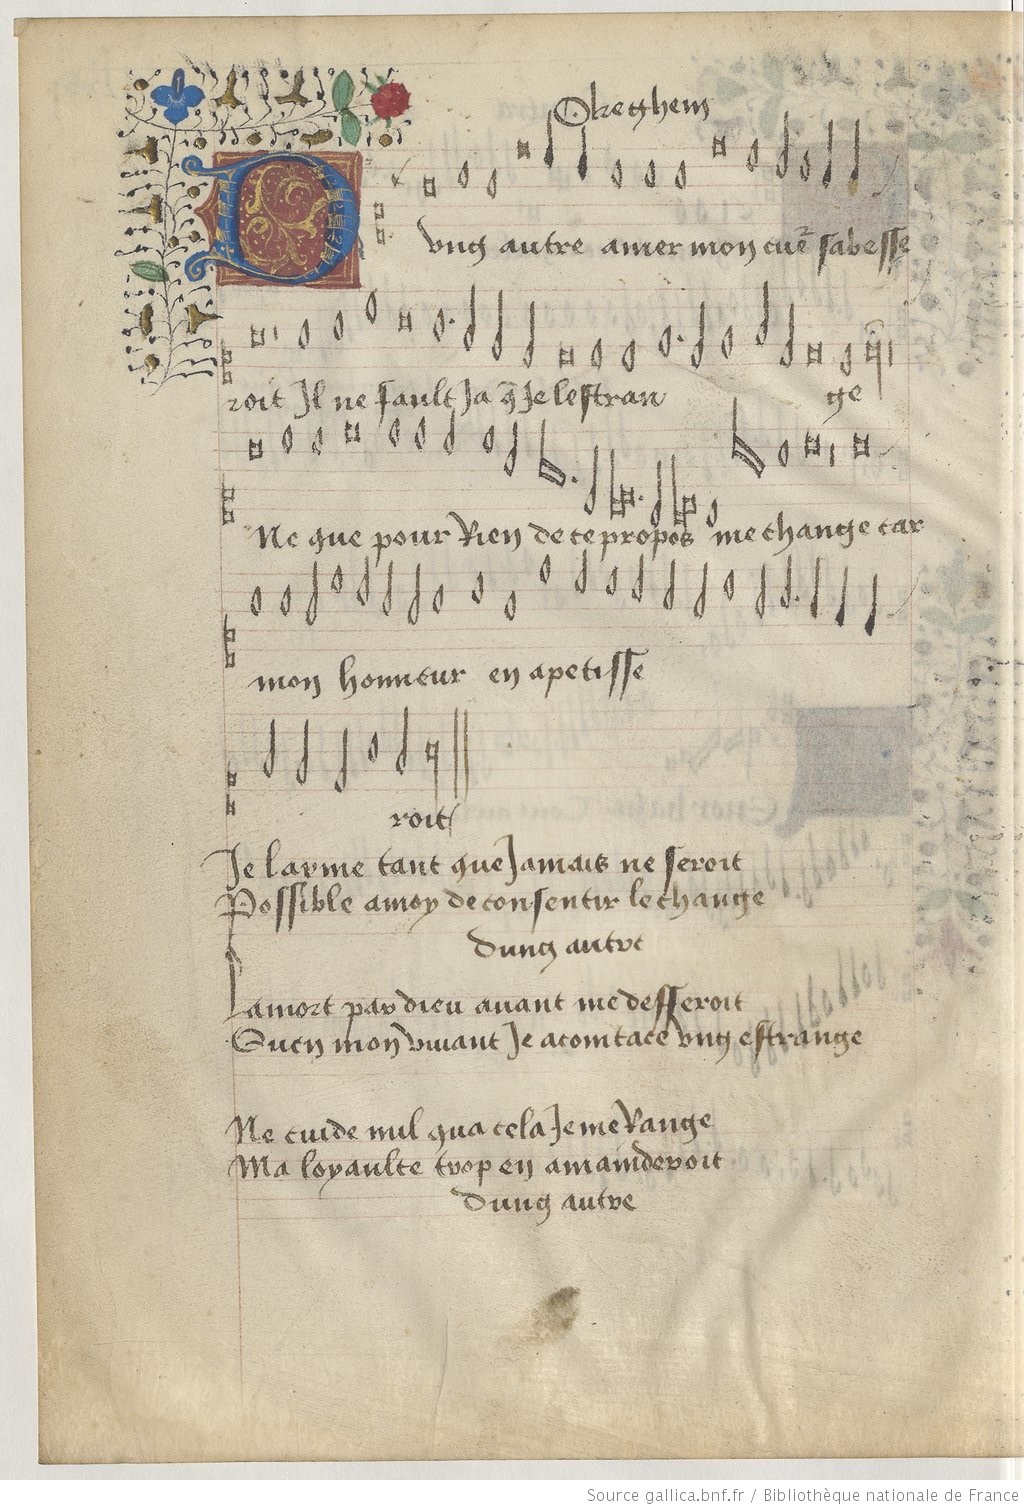 Okeghem
Dung autre amer mon cuer sabesse
roit Il ne fault Ja q̃ Je lestran ge
Ne que pour Rien de ce propos me change car
mon honneur en apetisse
roit
Je layme tant que Jamais ne seroit
Possible a moy de consentir le change
dung autre
La mort par dieu avant me desferoit
Quen mon vivant Je acointace ung estrange
Ne cuide nul qua cela Je me Range
Ma loyaulte trop en amainderoit
dung autre
Source gallica.bnf.fr / Bibliothèque nationale de France